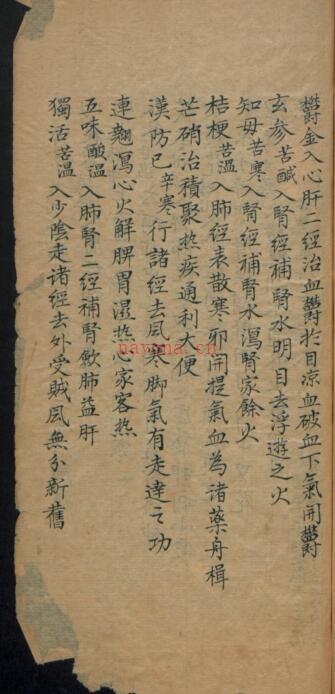 鬱金入心肝二經治血鬱於目凉血破血下氣開鬱
玄參苦醎入腎經補腎水明目去浮遊之火
知母苦寒入腎經補腎水瀉腎家餘火
桔梗苦温入肺經表散寒邪開提氣血為诸藥舟楫
芒硝治積聚热疾通利大便
漢防已辛寒行諸經去風寒脚氣有走達之功
連翹瀉心火解脾胃濕热心家客热
五味酸温入肺腎二經補腎斂肺益肝
獨活苦温入少陰走诸經去外受賊風無分新舊
navima.cn